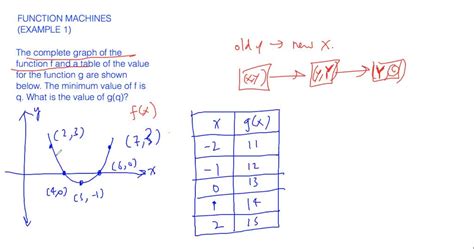 FUNCTION MACHINES
(EXAMPLE 1)
The complete graph of the
function f and a table of the value
for the function g are shown
below. The minimum value of f is
q. What is the value of g(q)?
old y → new x.
(x,y) → (y,Y) → 
f(x)
y
(2,3)
(7,3)
(6,0)
x
(4,0)
(5,-1)
x g(x)
-2 11
-1 12
0 13
1 14
2 15